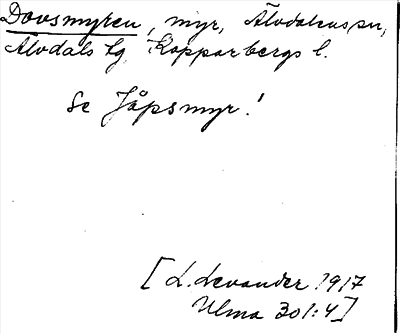 Dovsmyren, myr, Älvdalens sn,
Älvdals tg Kopparbergs l.
Se Jåpsmyr!
[L. Levander 1917
Ulma 301:4]